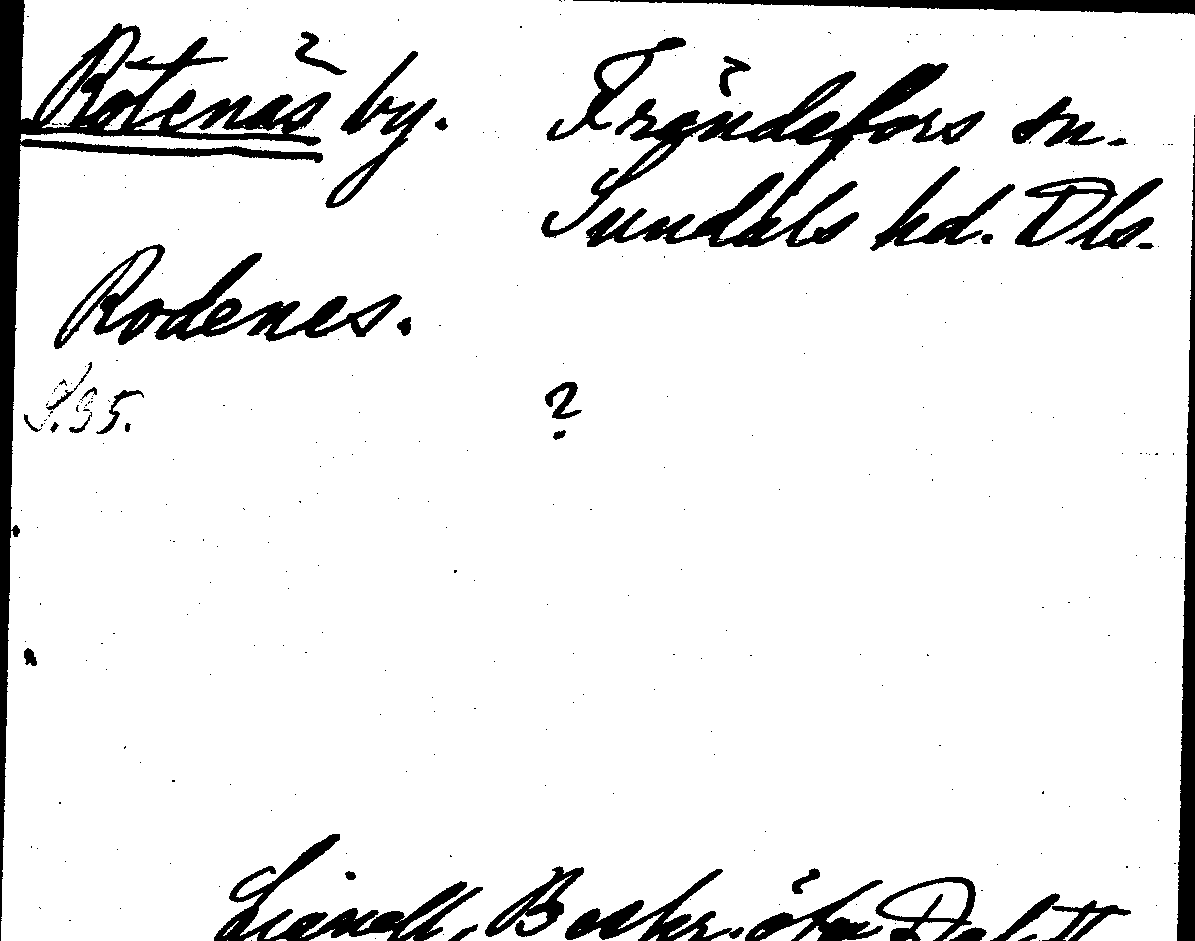 Rötenäs by. Frändefors sn.
Sundals hd. Dls.
Rodenes.
S. 35. ?
Lignell, Beskr. öfv. Dal II